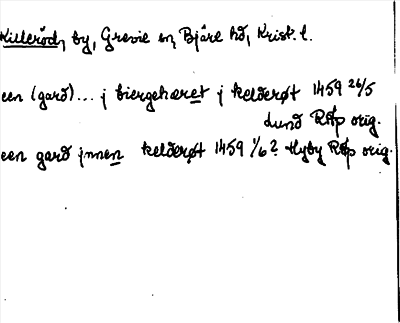 Killeröd, by, Grevie sn, Bjäre hd, Krist. l.
een (gard) ... j biergehæret j kelderøt 1459 26/5
Lund RAp orig.
een gard jnnen kelderøt 1459 1/6? Hyby RAp orig.